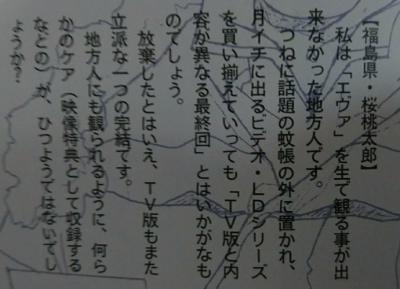 【福島県・桜桃太郎】
私は「エヴァ」を生で観る事が出
来なかった地方人です。
つねに話題の蚊帳の外に置かれ、
月イチに出るビデオ・LDシリーズ
を買い揃えていっても「TV版と内
容か異なる最終回」とはいかがなも
のでしょう。
放棄したとはいえ、TV版もまた
立派な一つの完結です。
地方人にも観られるように、何ら
かのケア（映像特典として収録する
などの）が、ひつようではないでし
ょうか？